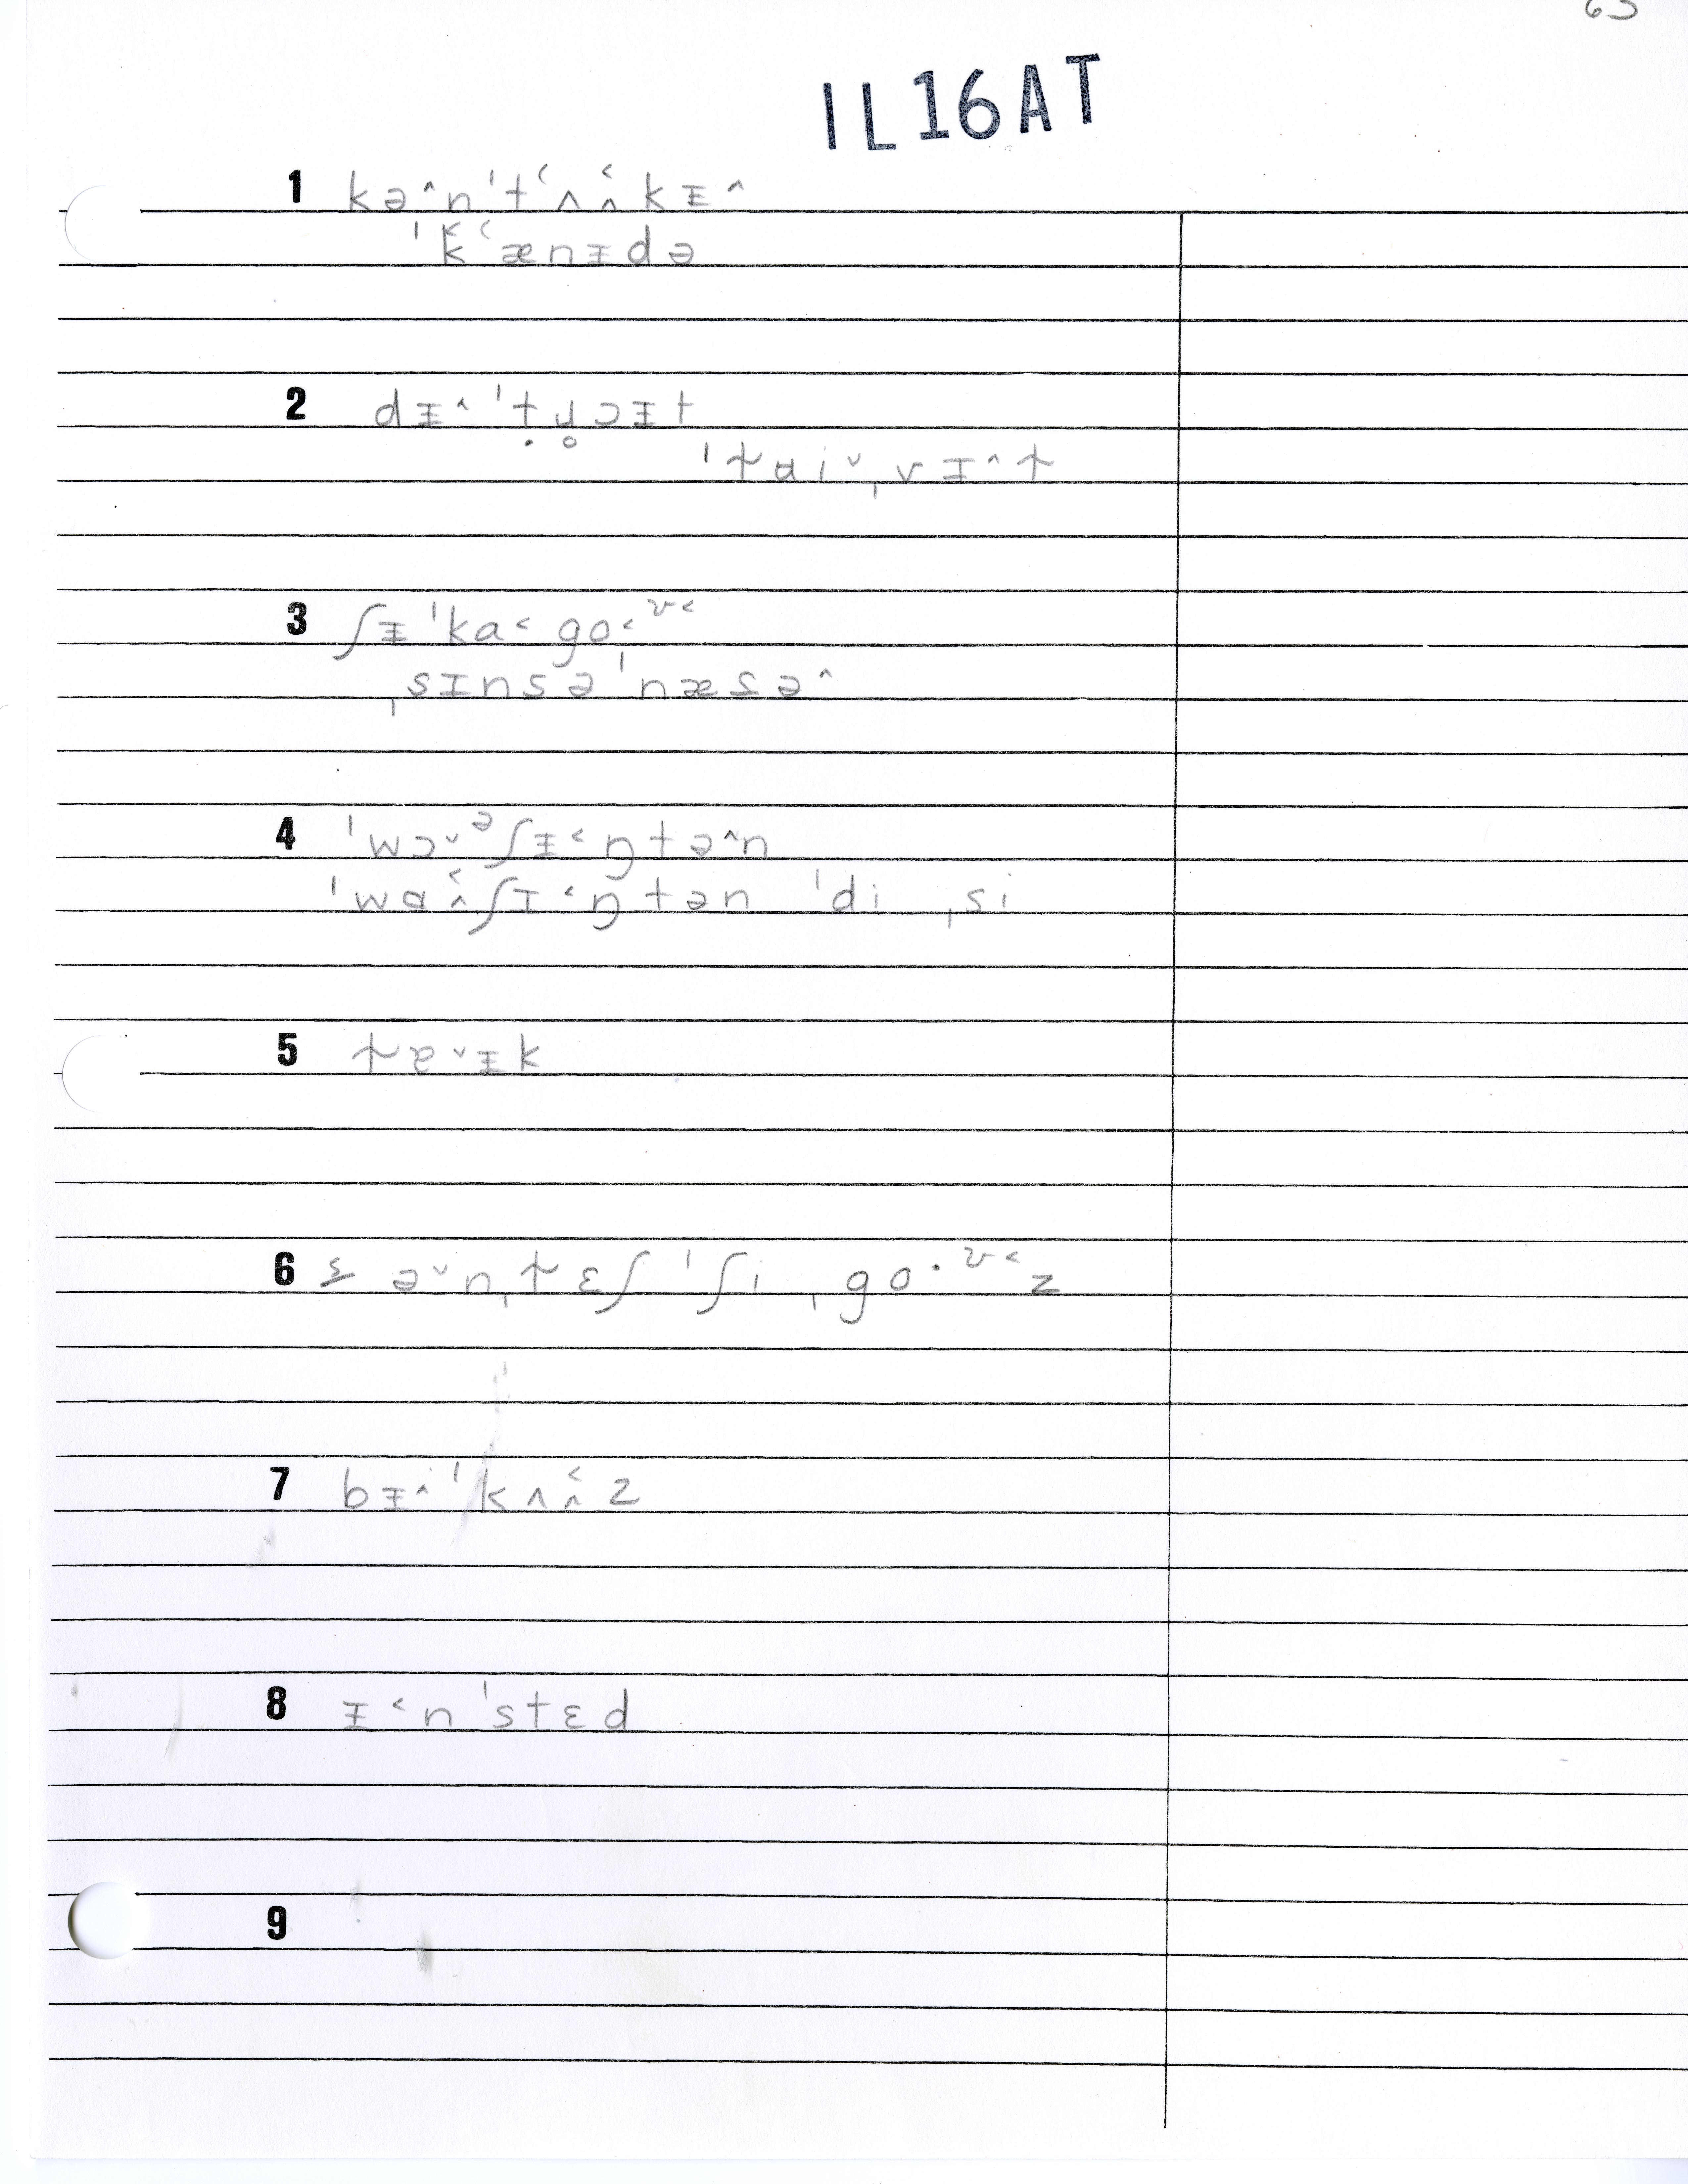 63
IL16AT
1 kə˄n'tʻʌʌ̭̂kɪ̵˄
'k̆ʻænɪ̵də
2 dɪ̵˄'t̩ɥ̥ɔɪ̵t
'tɑi˅ˌvɪ˄t
3 ʃɪ̵'ka˂go˂ᶹ˂
ˌsɪnsə'næsə˄
4 'wɔ˅ᵊʃɪ̵˂ŋtə˄n
'wɑʌ̭̂ʃɪ˂ŋtən 'di ˌsi
5 tɐ˅ɪ̵k
6 ə˅nˌtɛʃ 'ʃi ˌgo·ᶹ˂z
7 bɪ̵˄'kʌʌ̭̂z
8 ɪ̵˂n'stɛd
9